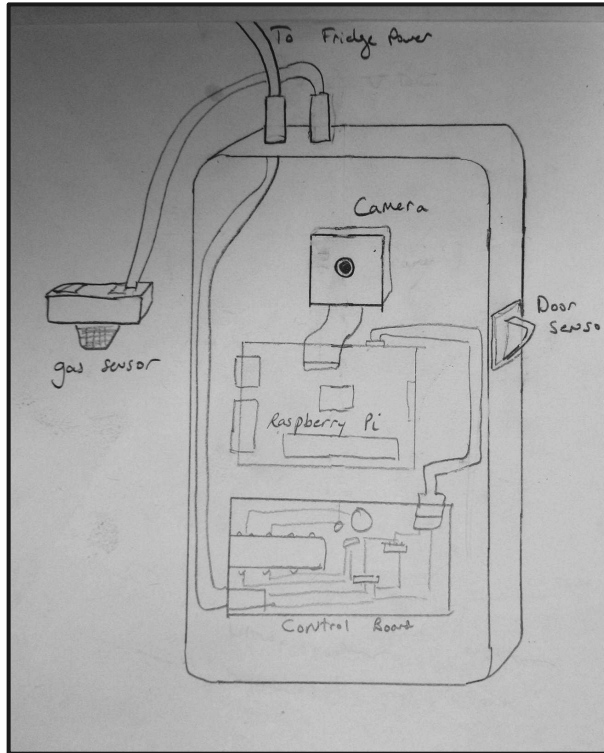 To Fridge Power
Camera
Door
Senso
gas sensor
Raspberry Pi
Control Board